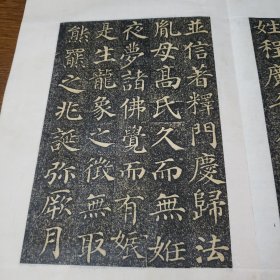 並信著釋門慶歸法
胤母高氏久而無妊
夜夢諸佛覺而有娠
是生龍象之徵無取
熊羆之兆誕弥厥月
姓程廣